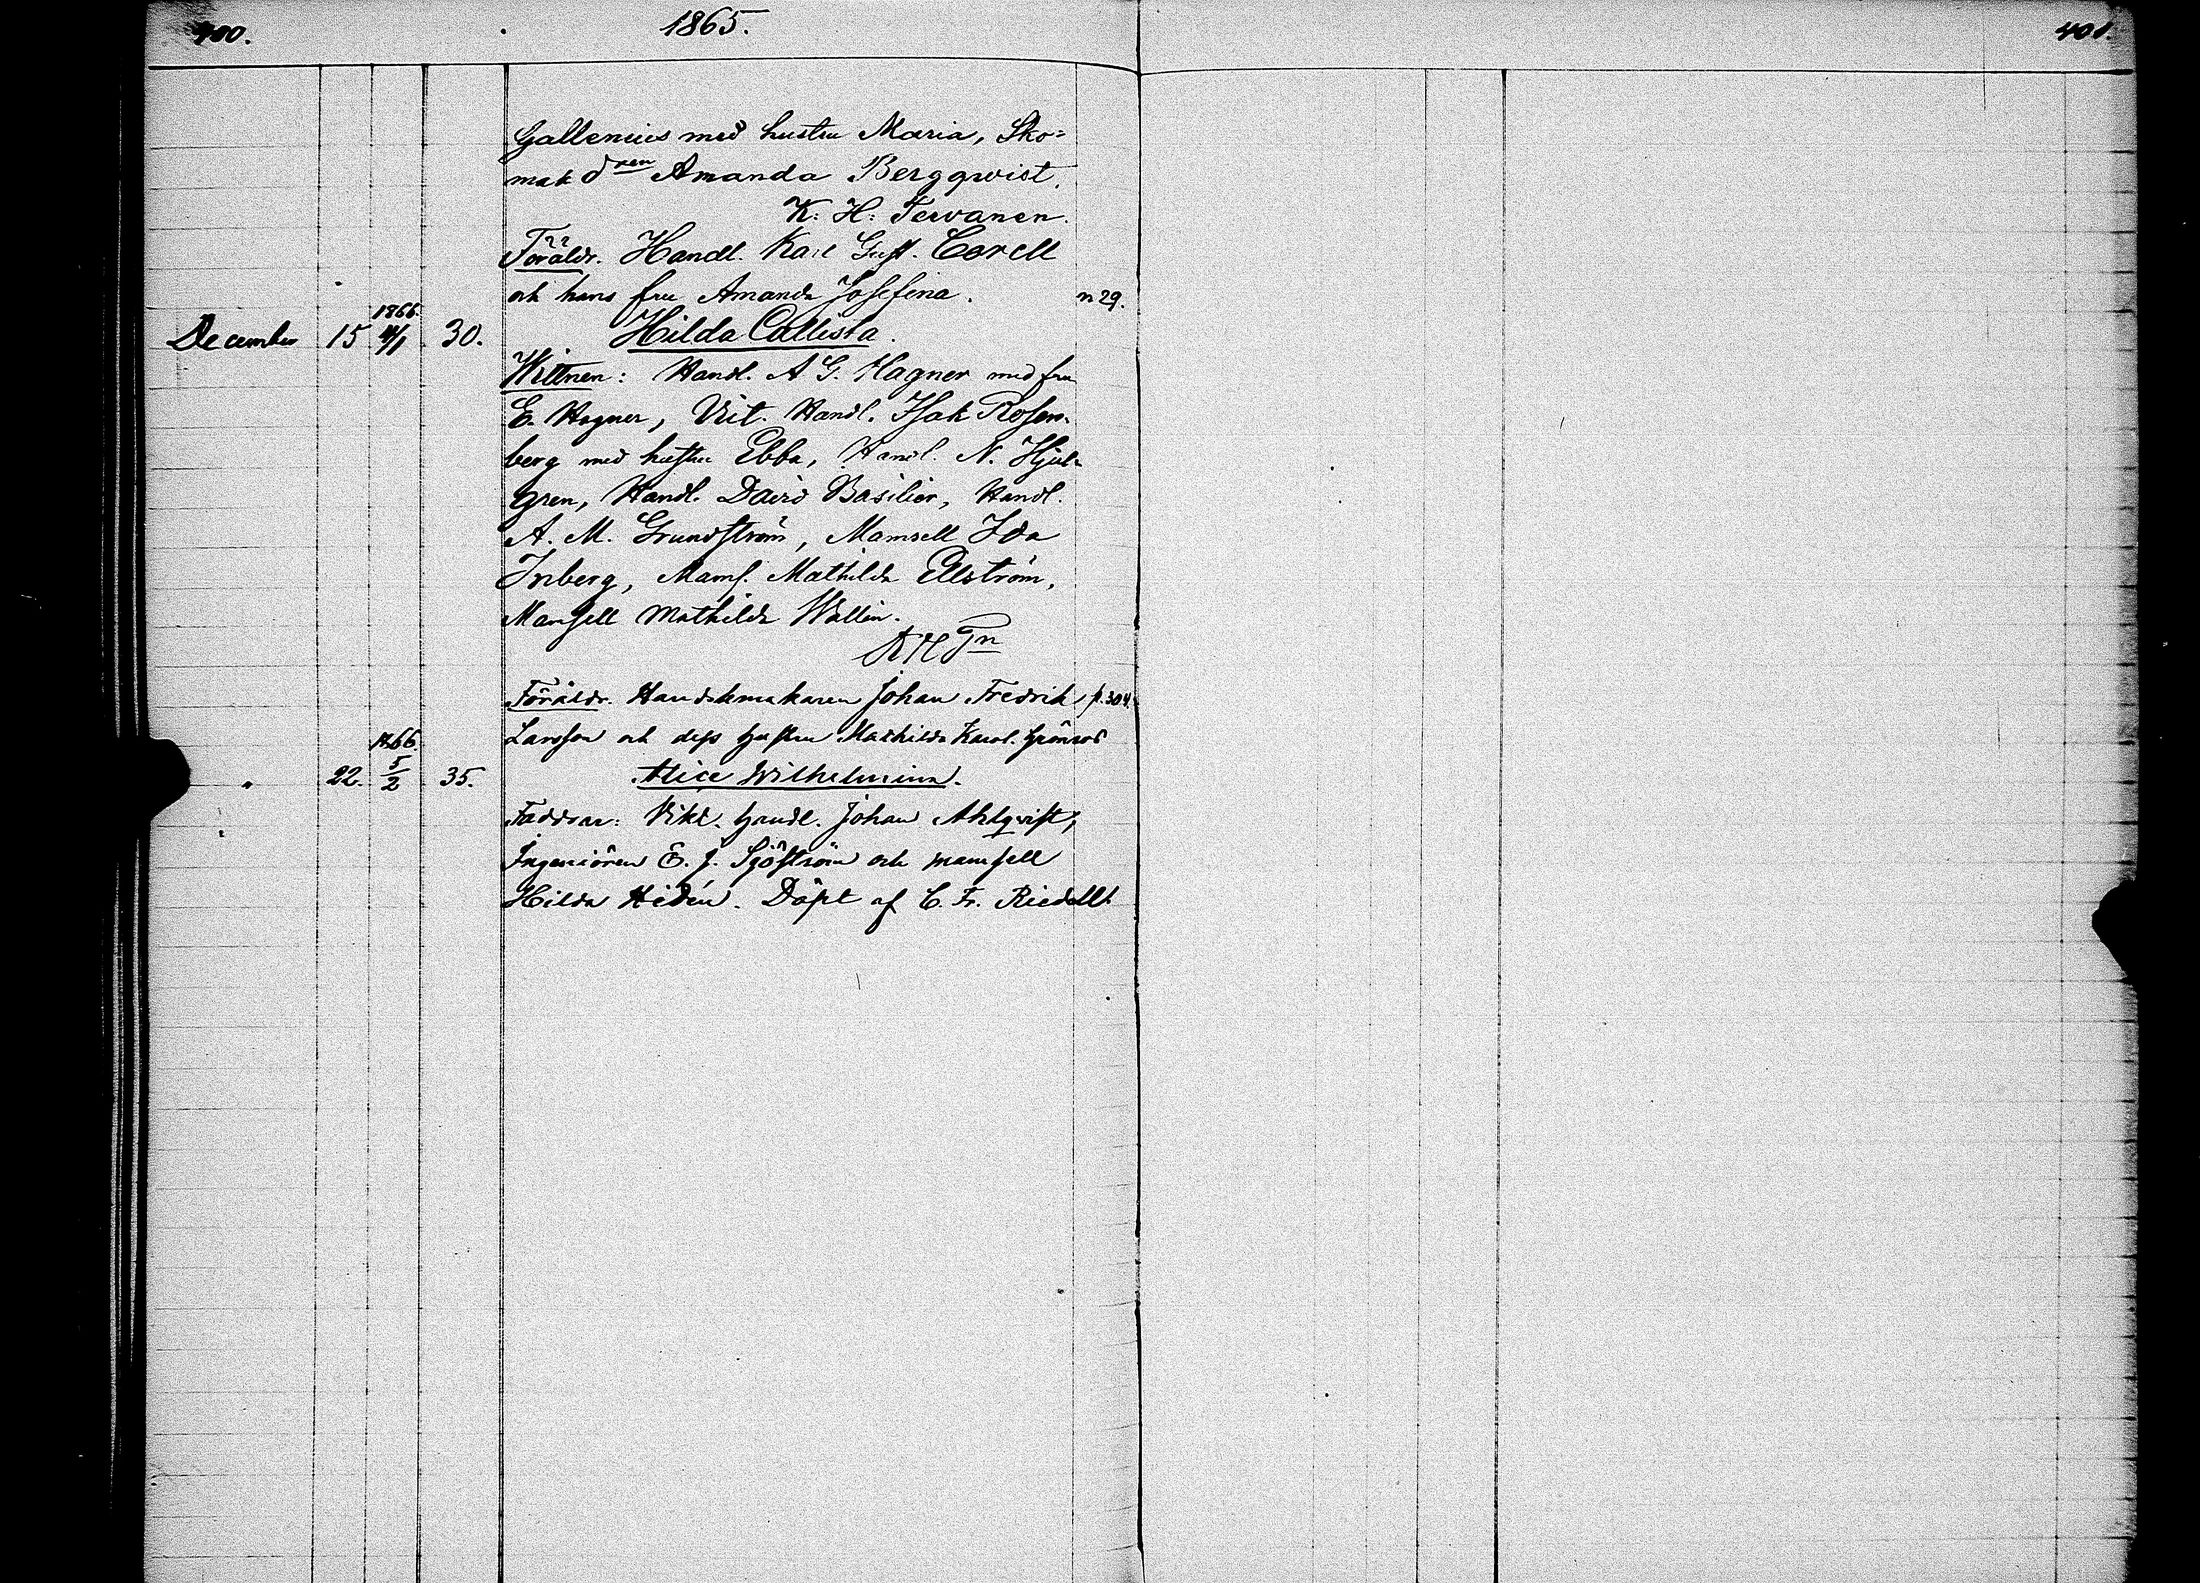 400.
1865.
401.
Gallenius med hustru Maria, Sko=
mak dren Amanda Bergqvist.
K: H: Tervanen.
Föräldr. Handl. Karl Gust. Corell
och hans fru Amanda Josefina. n 29.
December 15 1866. 30. Hilda Callista.
Wittnen: Handl. A G. Hagner med fru
E. Hagner, Vict. Handl. Isak Rosen-
berg med hustru Ebba, Handl. N. Hjul-
gren, Handl. David Basilier, Handl.
A. M. Grundström, Mamsell Ida
Inberg, Mams. Mathilda Ellström,
Mamsell Mathilda Wallin.
K H Tn
Föräldr. Handskmakaren Johan Fredrik p. 304.
Larsson och dess hustru Mathilda Karol. Grönroos
" 22. 1866. 5/2 35. Alice Wilhelmina.
Faddrar: Vikt. handl. Johan Ahlqvist,
Ingeniören E. J. Sjöström och mamsell
Hilda Hidén. Döpt af C. Fr. Riedell.